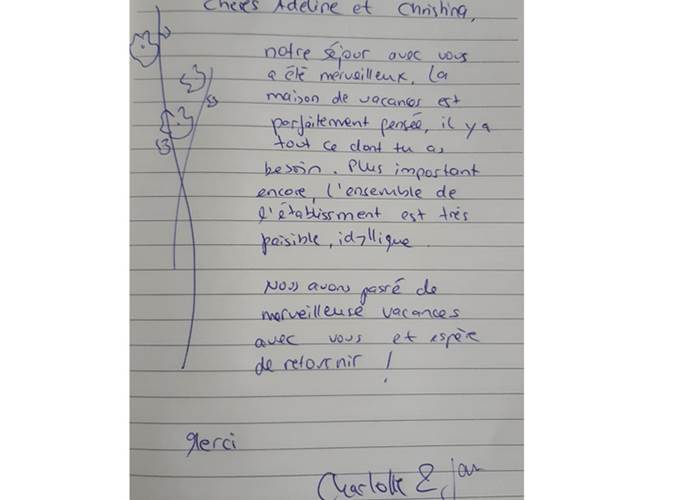 Chères Adeline et Christina,
notre séjour avec vous
a été merveilleux. La
maison de vacances est
parfaitement pensée, il y a
tout ce dont tu as
besoin. Plus important
encore, l'ensemble de
l'établissment est très
paisible, idyllique.
Nous avons passé de
merveilleuse vacances
avec vous et espère
de retournir !
Merci
Charlotte & Jan